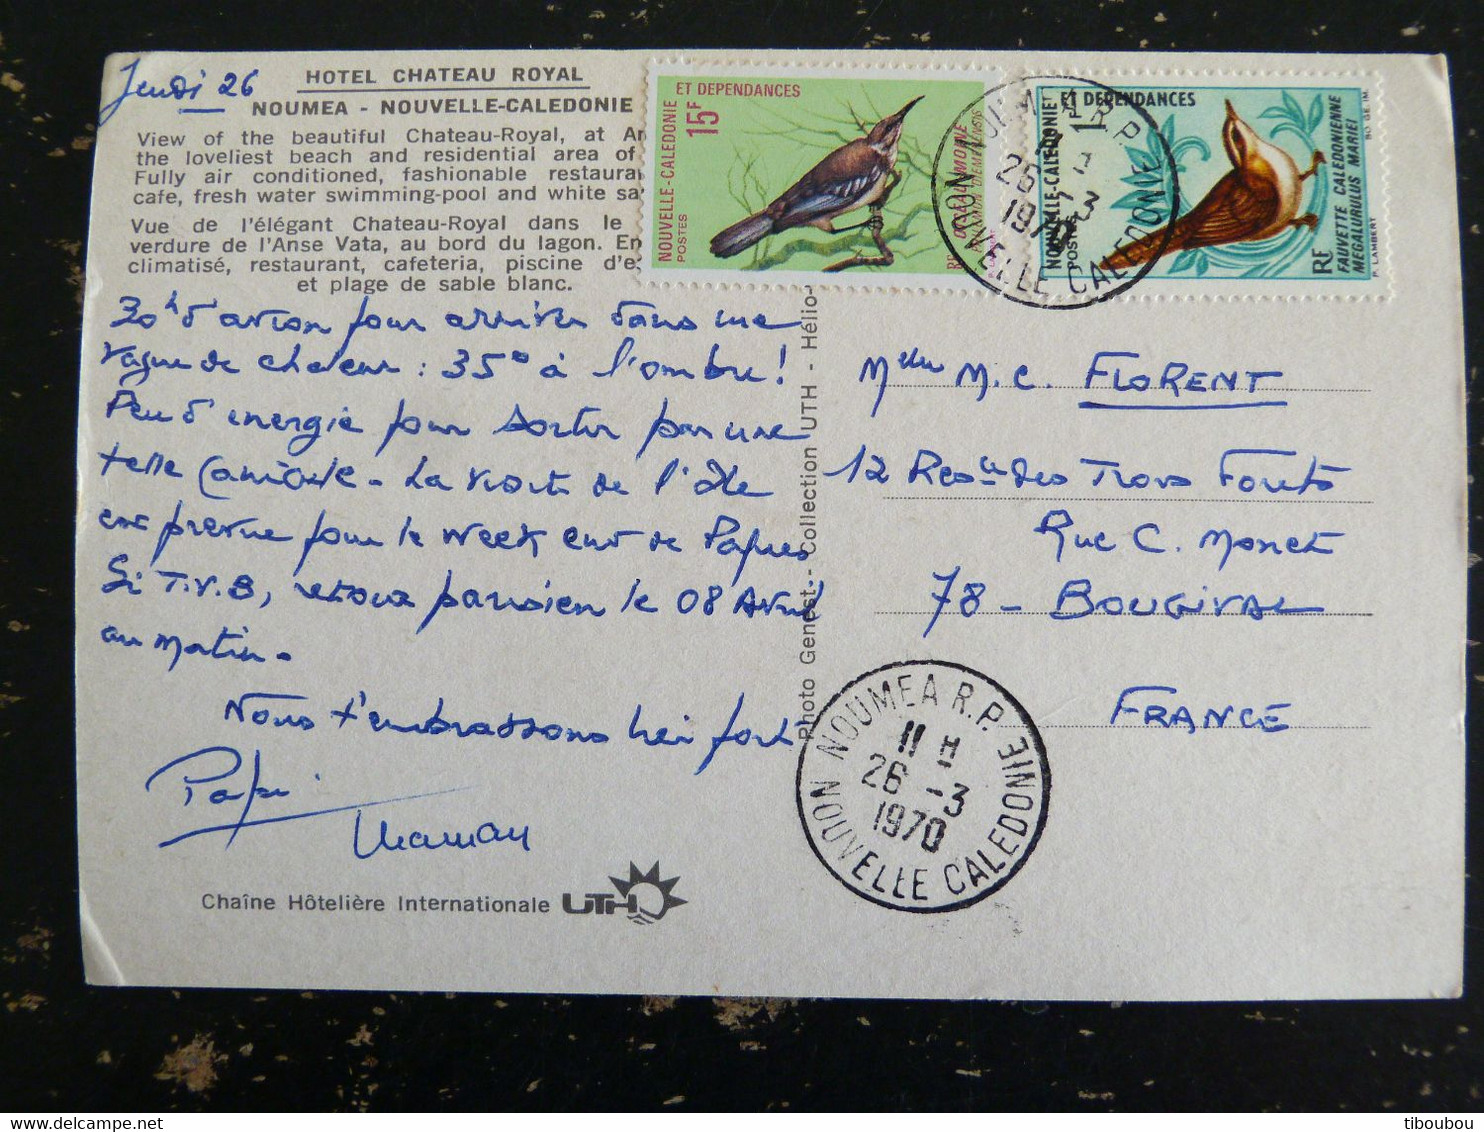 Jeudi 26
HOTEL CHATEAU ROYAL
NOUMEA - NOUVELLE-CALEDONIE
View of the beautiful Chateau-Royal, at An
the loveliest beach and residential area of
Fully air conditioned, fashionable restaura
cafe, fresh water swimming-pool and white sa
Vue de l'élégant Chateau-Royal dans le
verdure de l'Anse Vata, au bord du lagon. En
climatisé, restaurant, cafeteria, piscine d'e
et plage de sable blanc.
30h d'avion pour arriver dans une
vague de chaleur : 35° à l'ombre !
Peu d'energie pour sortir par une
telle canicule - La visite de l'île
est prévue pour le week end de Pâques
Si T.V.B, retour parisien le 08 Avril
au matin -
Nous t'embrassons bien fort
Papi
Maman
Chaîne Hôtelière Internationale UTH
Photo Genest - Collection UTH - Hélio-
NOUVELLE-CALEDONIE
ET DEPENDANCES
15F
POSTES
RF
NOUVELLE-CALEDONIE
ET DEPENDANCES
1F
POSTES
RF
FAUVETTE CALEDONIENNE
MEGALURULUS MARIEI
P. LAMBERT
SO. GE. IM.
NOUMEA R.P.
26 - 3
1970
NOUVELLE CALEDONIE
Melle M.C. FLORENT
12 Resce des Trois Forets
Rue C. Monet
78 - BOUGIVAL
FRANCE
NOUMEA R.P.
11 H
26 - 3
1970
NOUVELLE CALEDONIE
tiboubou